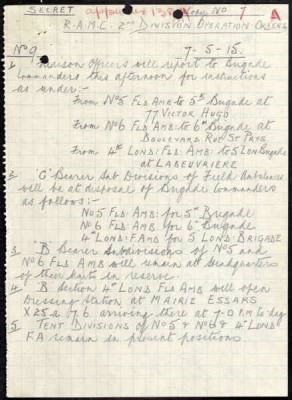 SECRET appendix 138 Copy No 7 A
R.A.M.C. 2nd DIVISION OPERATION ORDERS
No 9. 7-5-15.
1 Liaison Officers will report to Brigade
Commanders this afternoon for instructions
as under:-
From No 5 FLD AMB to 5th Brigade at
77 VICTOR HUGO
From No 6 FLD AMB: to 6th Brigade at
BOULEVARD RUE St PRYS
From 4th LOND: FLD: AMB: to 5 LON Brigade
at LABEUVRIERE
2 'C' Bearer Sub Divisions of Field Ambulances
will be at disposal of Brigade Commanders
as follows:-
No 5 FLD: AMB: for 5th Brigade
No 6 FLD: AMB: for 6th Brigade
4th LOND: F.AMB for 5 LOND: BRIGADE
3 'B' Bearer Subdivisions of No 5 and
No 6 FLD AMB will remain at headquarters
of their units in reserve.
4 'B' Section 4th LOND FLD AMB will open
Dressing Station at MAIRIE ESSARS
X 25 a 7.6 arriving there at 7-0 P.M. to day
5 TENT DIVISIONS of No 5 & No 6 & 4th LOND
F.A remain in present positions.